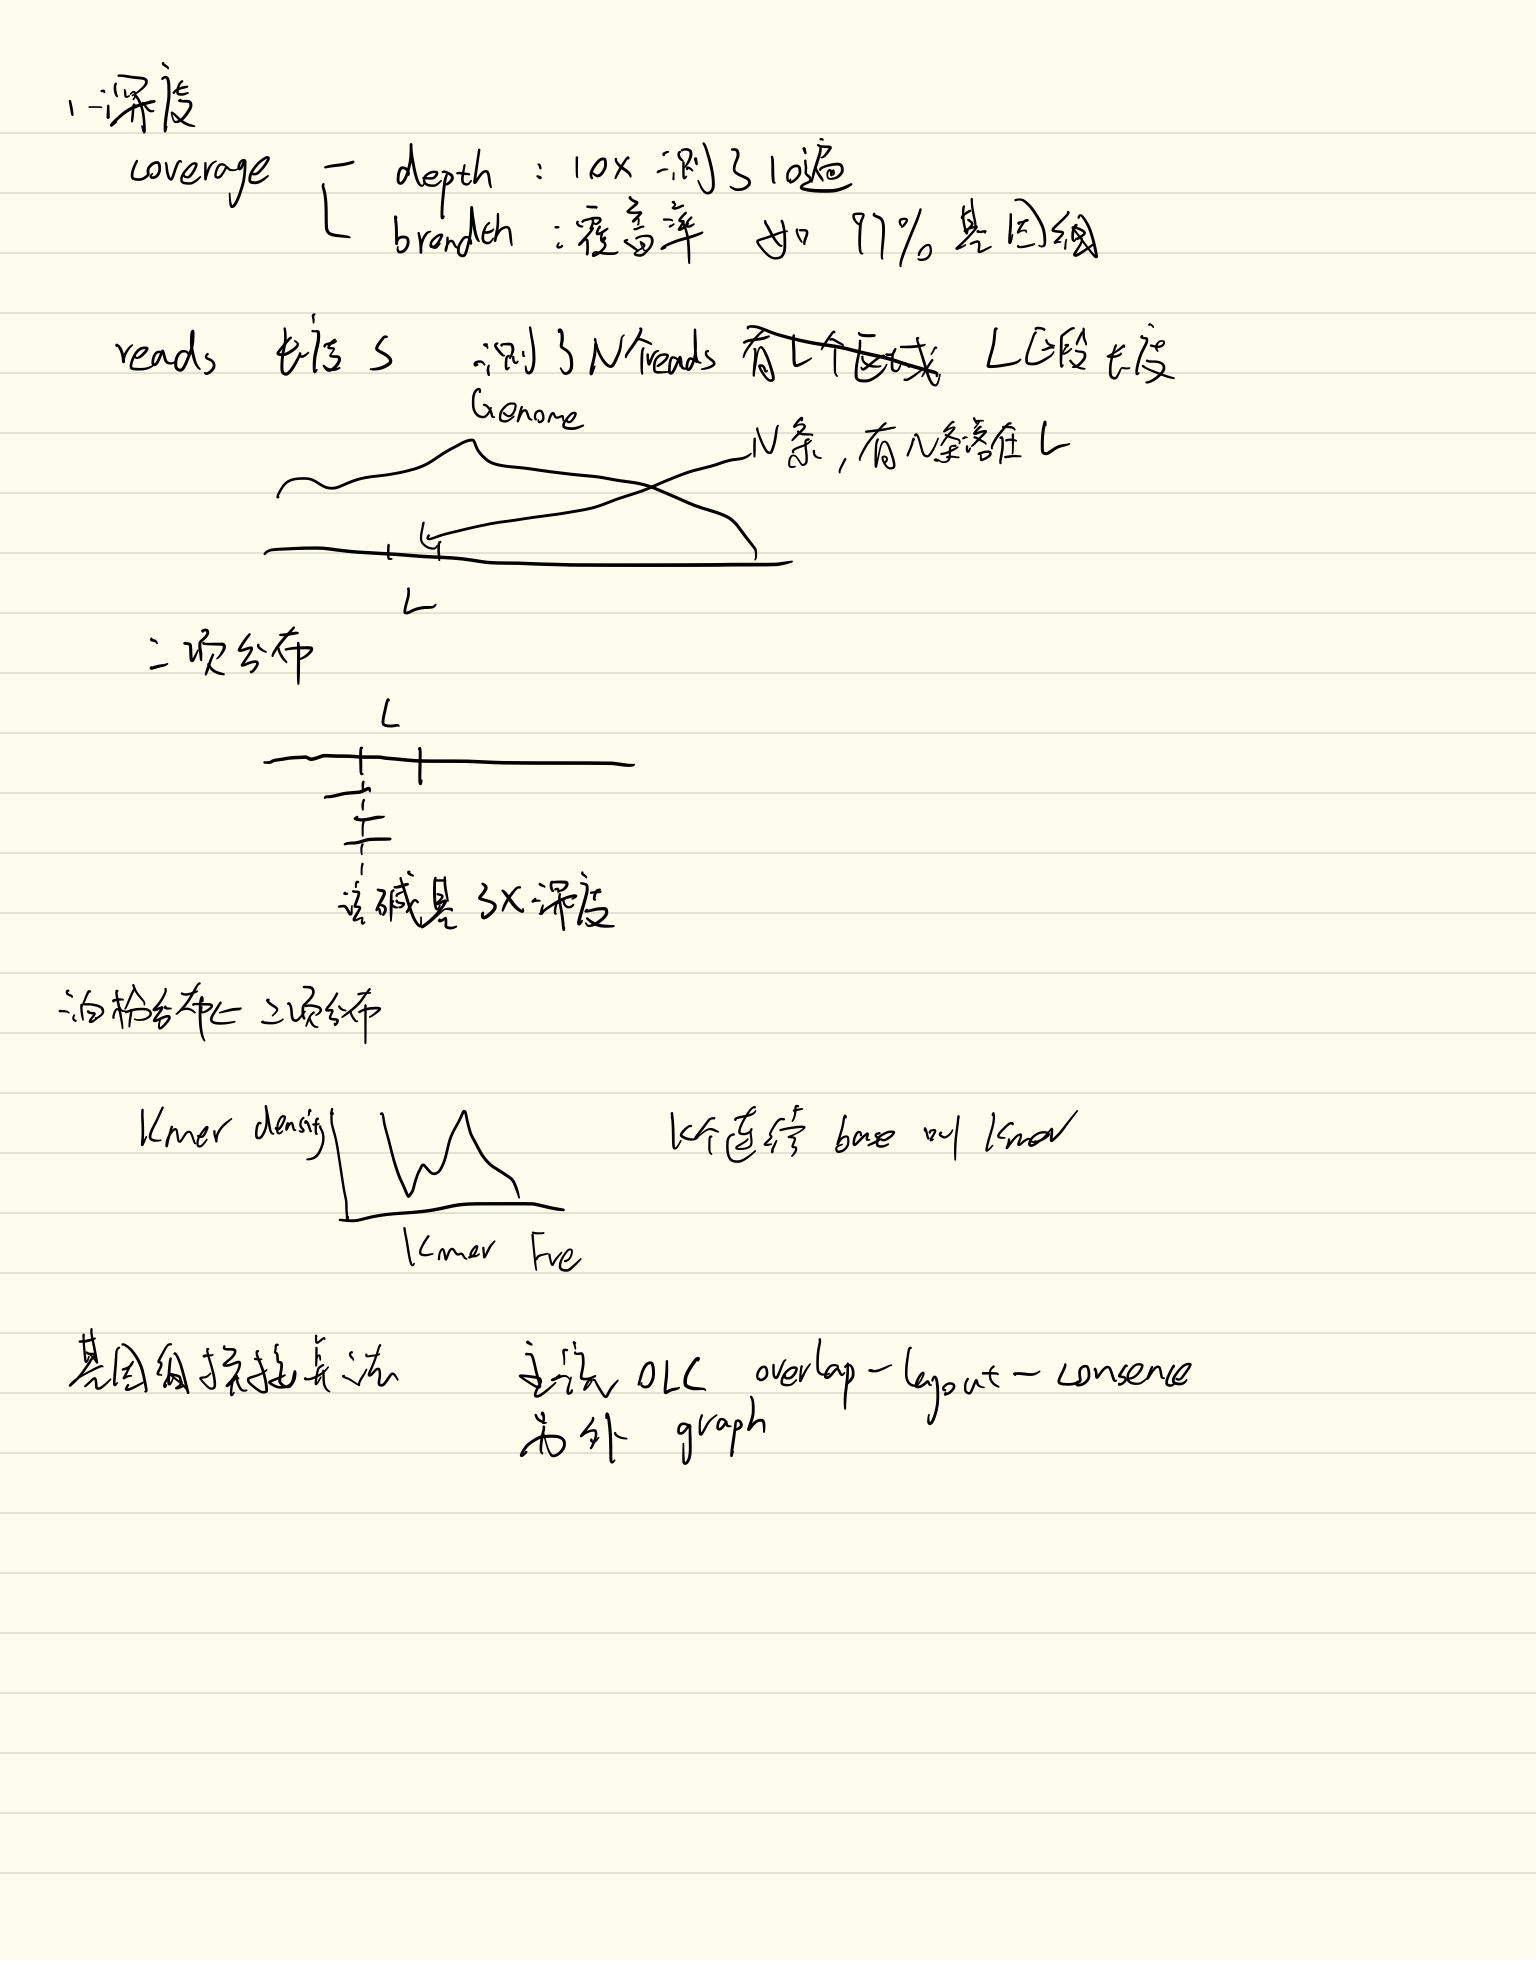 1. 深度
coverage depth : 10X 测了10遍
breadth : 覆盖率 如 97% 基因组
reads 长度 S 测了N个reads 有L个区域 L区段长度
Genome
N条, 有N条落在 L
L
二项分布
L
该碱基 3X 深度
泊松分布 二项分布
Kmer density
K个连续 base 叫 kmer
Kmer Fre
基因组 算法 主流 OLC overlap-layout-consence
另外 graph